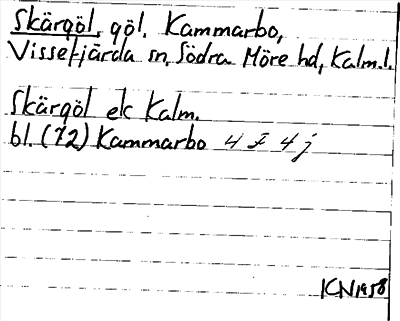 Skärgöl, göl, Kammarbo,
Vissefjärda sn, Södra Möre hd, Kalm.l.
Skärgöl ek Kalm.
bl. (72) Kammarbo 4 I 4 j
KN 1958